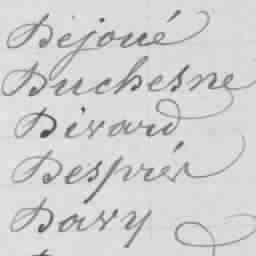 Déjoué
Duchesne
Divard
Després
Davy